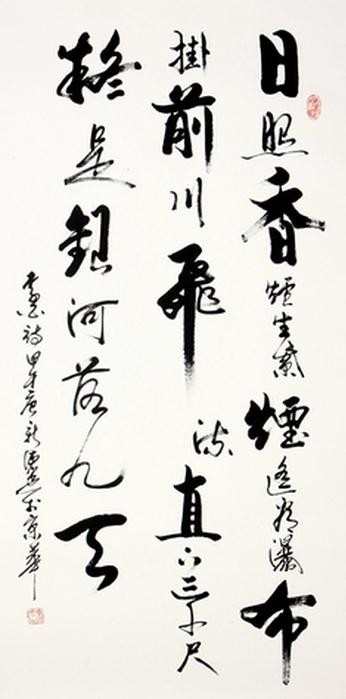 日照香爐生紫煙遙看瀑布
掛前川飛流直下三千尺
疑是銀河落九天
李白詩 於京華